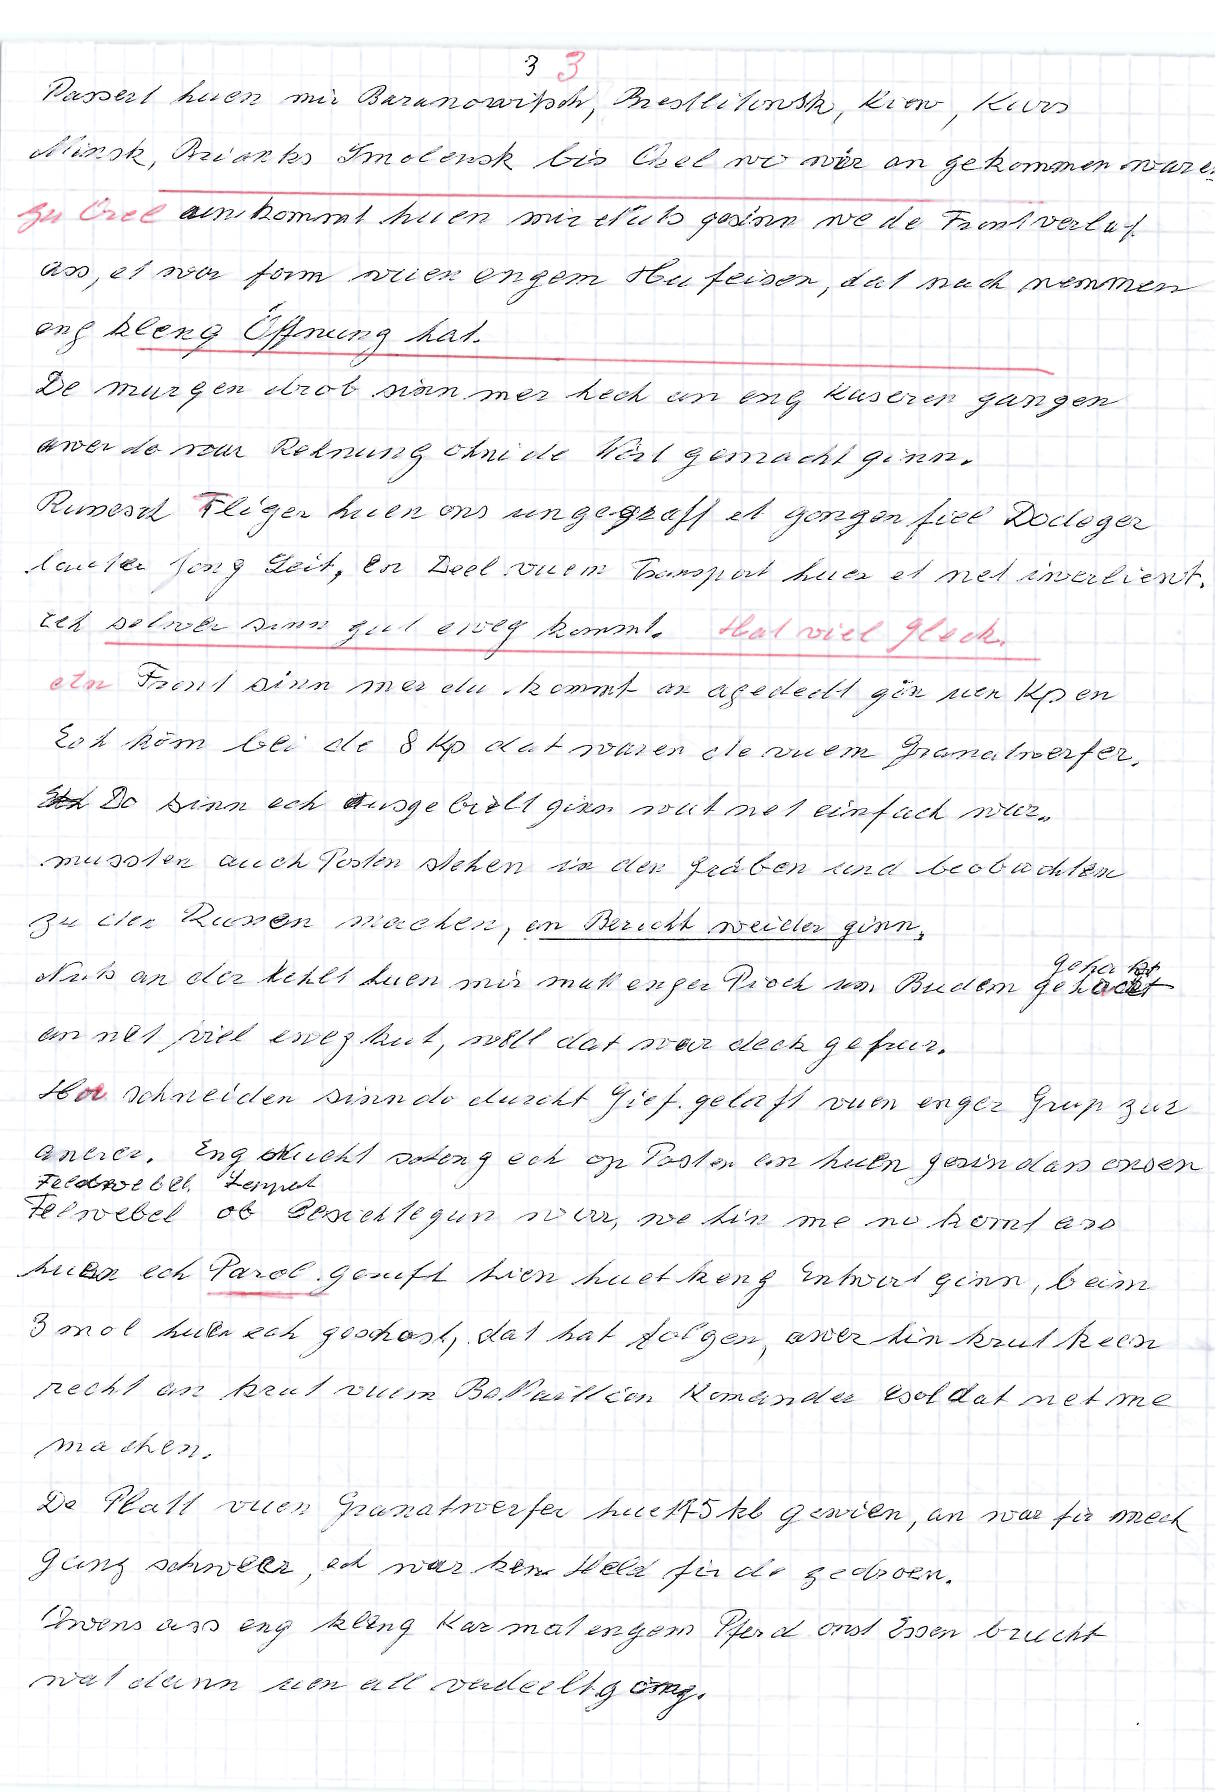 3 3
Passert huen mir Baranowitsch, Brestlitowsk, Kiow, Kurs
Minsk, Brianks Smolensk bis Orel wo wir an gekommen ware.
zu Orel ukommt huen mir Nuts gesinn we de Frontverlaf
ass, et war form vuen engem Hufeisen, dat nach nemmen
eng kleng Öffnung hat.
De murgen drob sinn mer hech an eng Kaseren gangen
awer do war Rechnung ohni de Wirt gemacht ginn.
Russesch Fliger huen ons ungegraff et gongen fill Dodeger
lauter jong Leit, En Deel vuem Transport huet et net iwerlieut.
ech selwer sinn gut eweg kommt. Hat viel Gleck.
Front sinn mer du kommt an agedeelt gin uen Kp en
Ech kom bei de 8 Kp dat waren de vuem Granatwerfer.
Do sinn ech ausgebielt ginn wat net einfach war.
mussten auch Posten stehen in den Gräben und beobachten
zu den Russen machen, an Bericht weider ginn,
gehackt
Nuts an der kehlt huen mir matt enger Pioch um Budem gehackt
an net viel eweg kut, well dat war deck gefrur.
Ho schneiden sinn do durcht Gief. geloft vuen enger Grup zur
anerer. Eng Nucht stong ech op Posten an huen gesin dass onsen
Feldwebel.
Felwebel ob Besichtegun war, we hin me no komt ass
huen ech Parol geruft hien huet keng Entwert ginn, beim
3 mol huen ech geschost, dat hat folgen, awer hin krut keen
recht an krut vuem Bataillion Komander Esoldat net me
machen.
De Platt vuen Granatwerfer huet 175 kl gewien, an war fir mech
ganz schweer, ech war ken Held fir do zedroen.
Owens ass eng kleng Kar mat engem Pferd onst Essen brucht
wat dann uen all verdeelt gong.